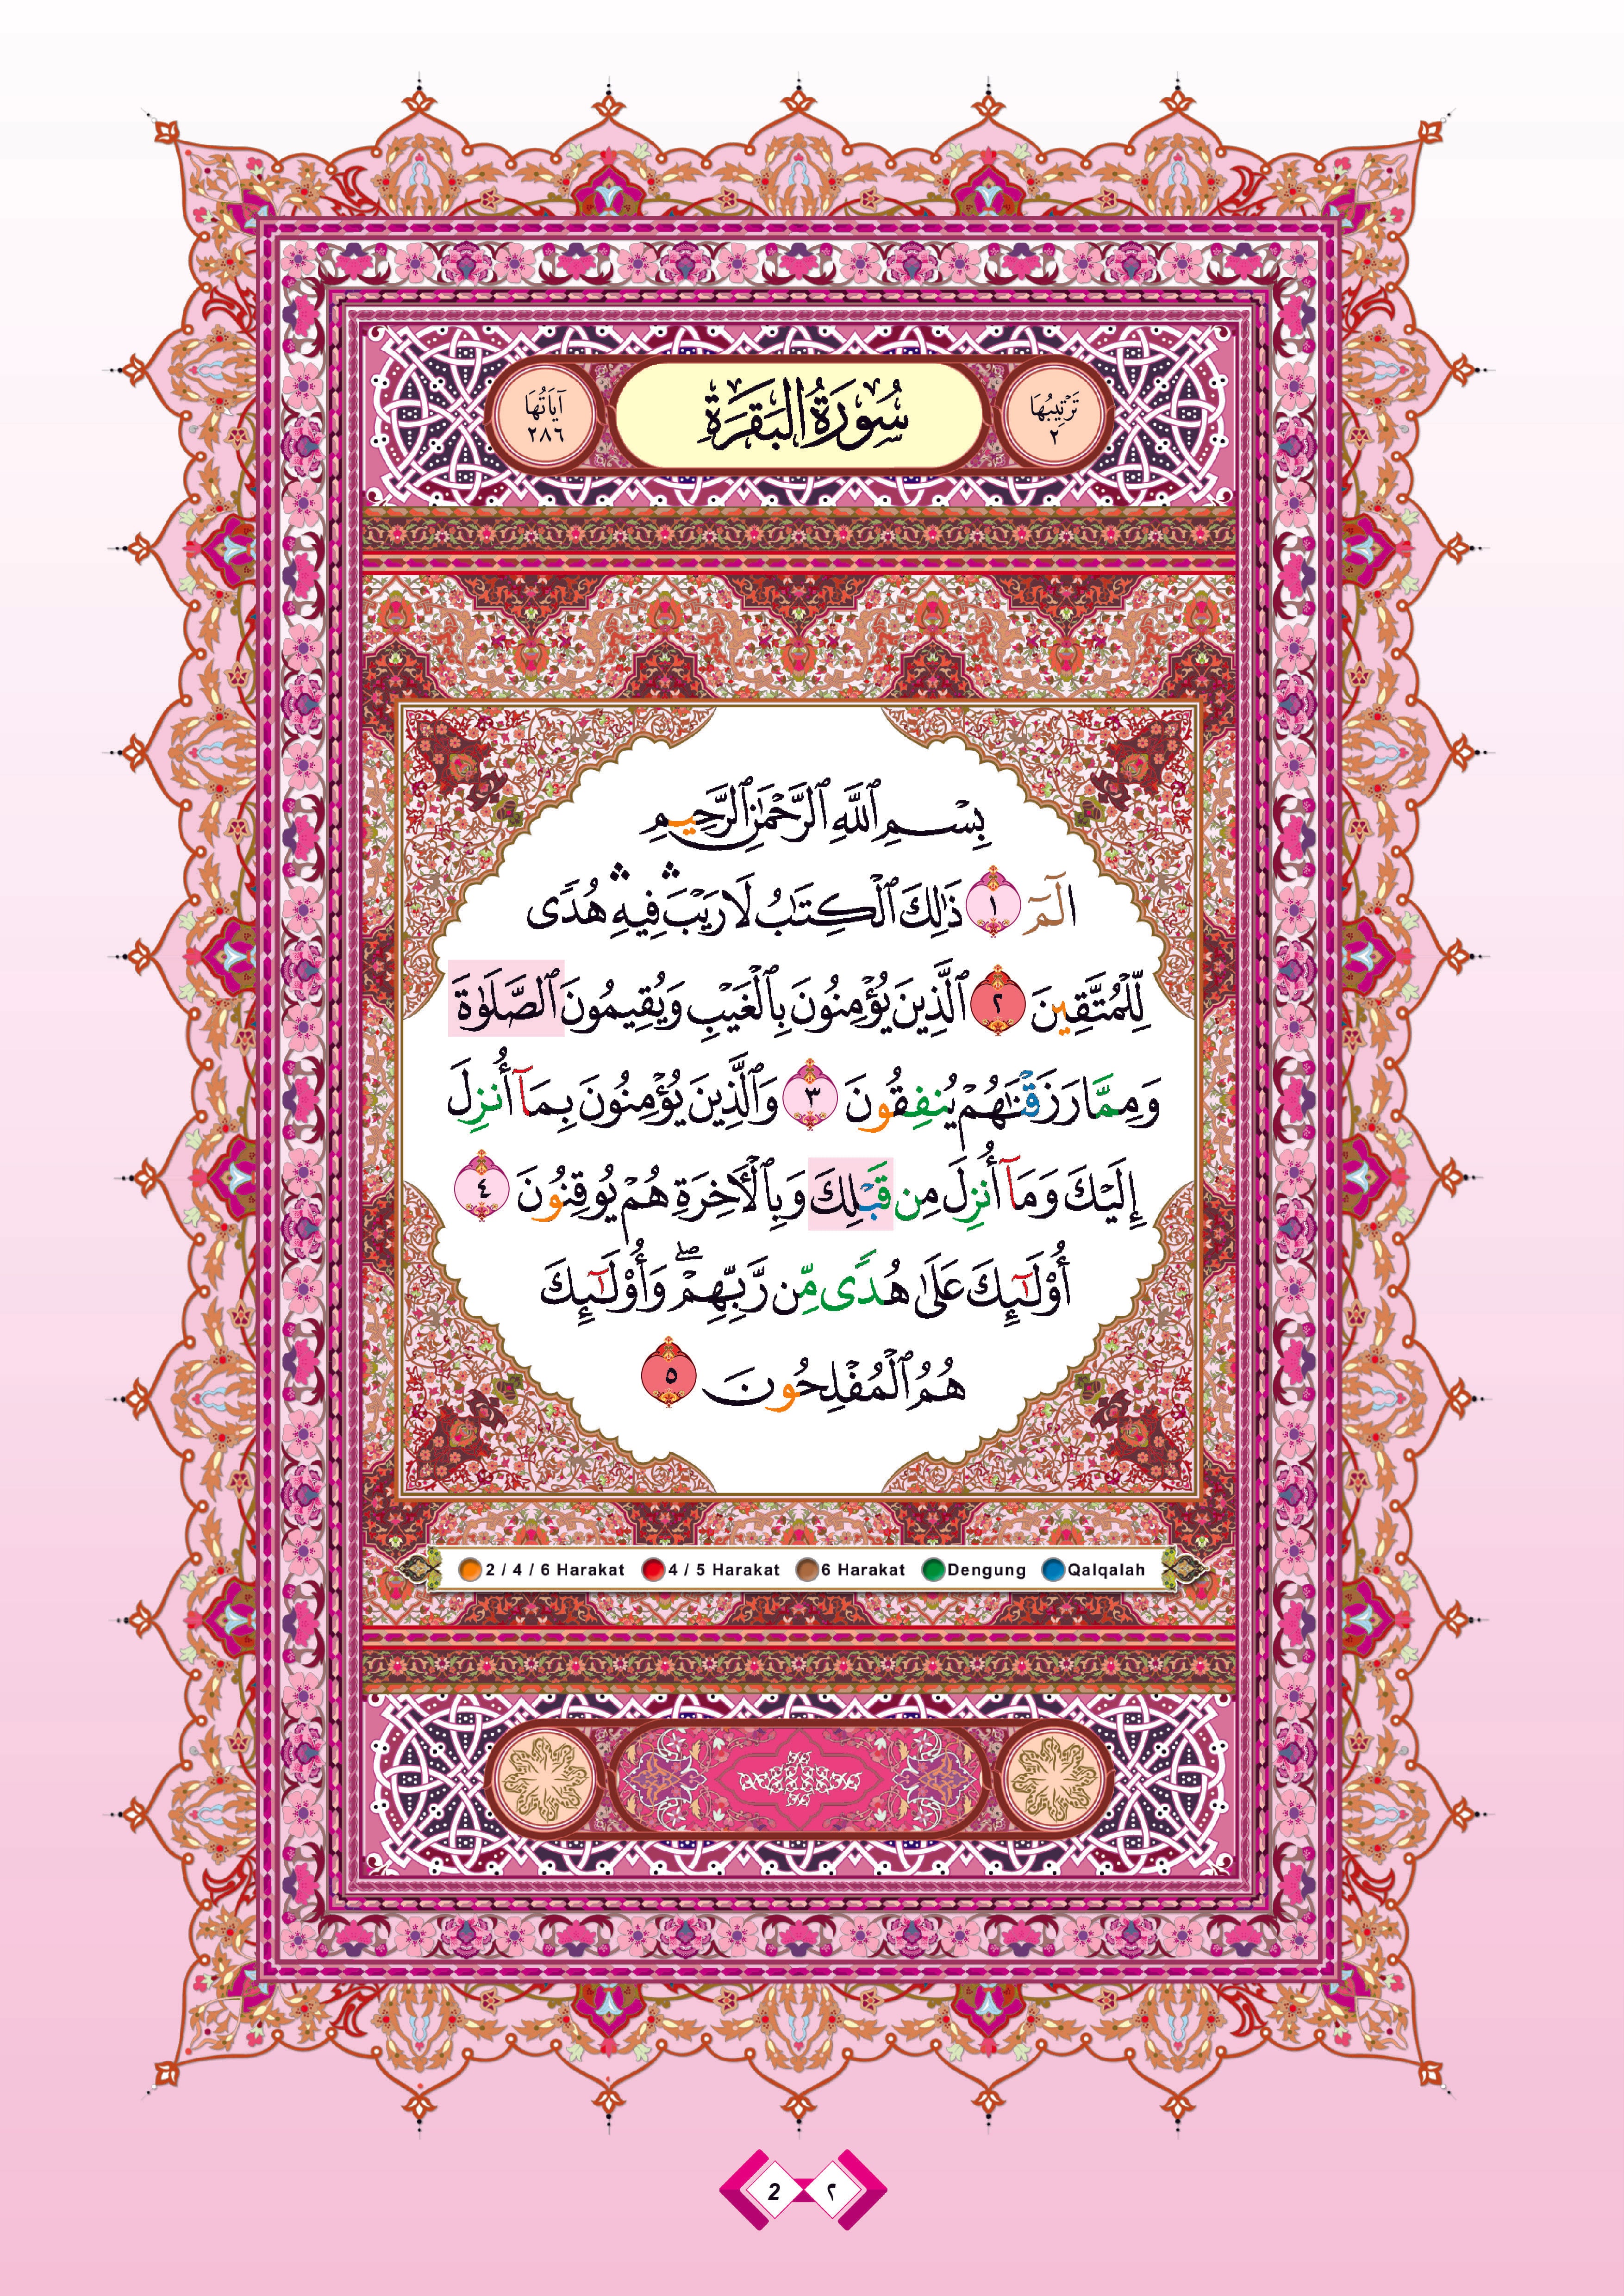 تَرْتِيبُهَا
٢
سُورَةُ الْبَقَرَةِ
آيَاتُهَا
٢٨٦
بِسْمِ ٱللَّهِ ٱلرَّحْمَٰنِ ٱلرَّحِيمِ
الٓمٓ ١ ذَٰلِكَ ٱلْكِتَٰبُ لَا رَيْبَ ۛ فِيهِ ۛ هُدًى
لِّلْمُتَّقِينَ ٢ ٱلَّذِينَ يُؤْمِنُونَ بِٱلْغَيْبِ وَيُقِيمُونَ ٱلصَّلَوٰةَ
وَمِمَّا رَزَقْنَٰهُمْ يُنفِقُونَ ٣ وَٱلَّذِينَ يُؤْمِنُونَ بِمَآ أُنزِلَ
إِلَيْكَ وَمَآ أُنزِلَ مِن قَبْلِكَ وَبِٱلْأَخِرَةِ هُمْ يُوقِنُونَ ٤
أُوْلَٰٓئِكَ عَلَىٰ هُدًى مِّن رَّبِّهِمْ ۖ وَأُوْلَٰٓئِكَ
هُمُ ٱلْمُفْلِحُونَ ٥
2 / 4 / 6 Harakat 4 / 5 Harakat 6 Harakat Dengung Qalqalah
2 ٢